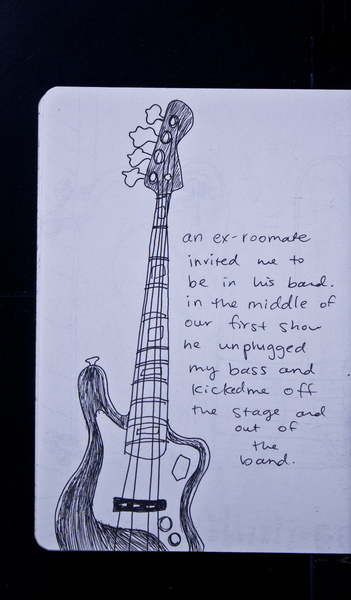 an ex-roomate
invited me to
be in his band.
in the middle of
our first show
he unplugged
my bass and
kicked me off
the stage and
out of
the
band.